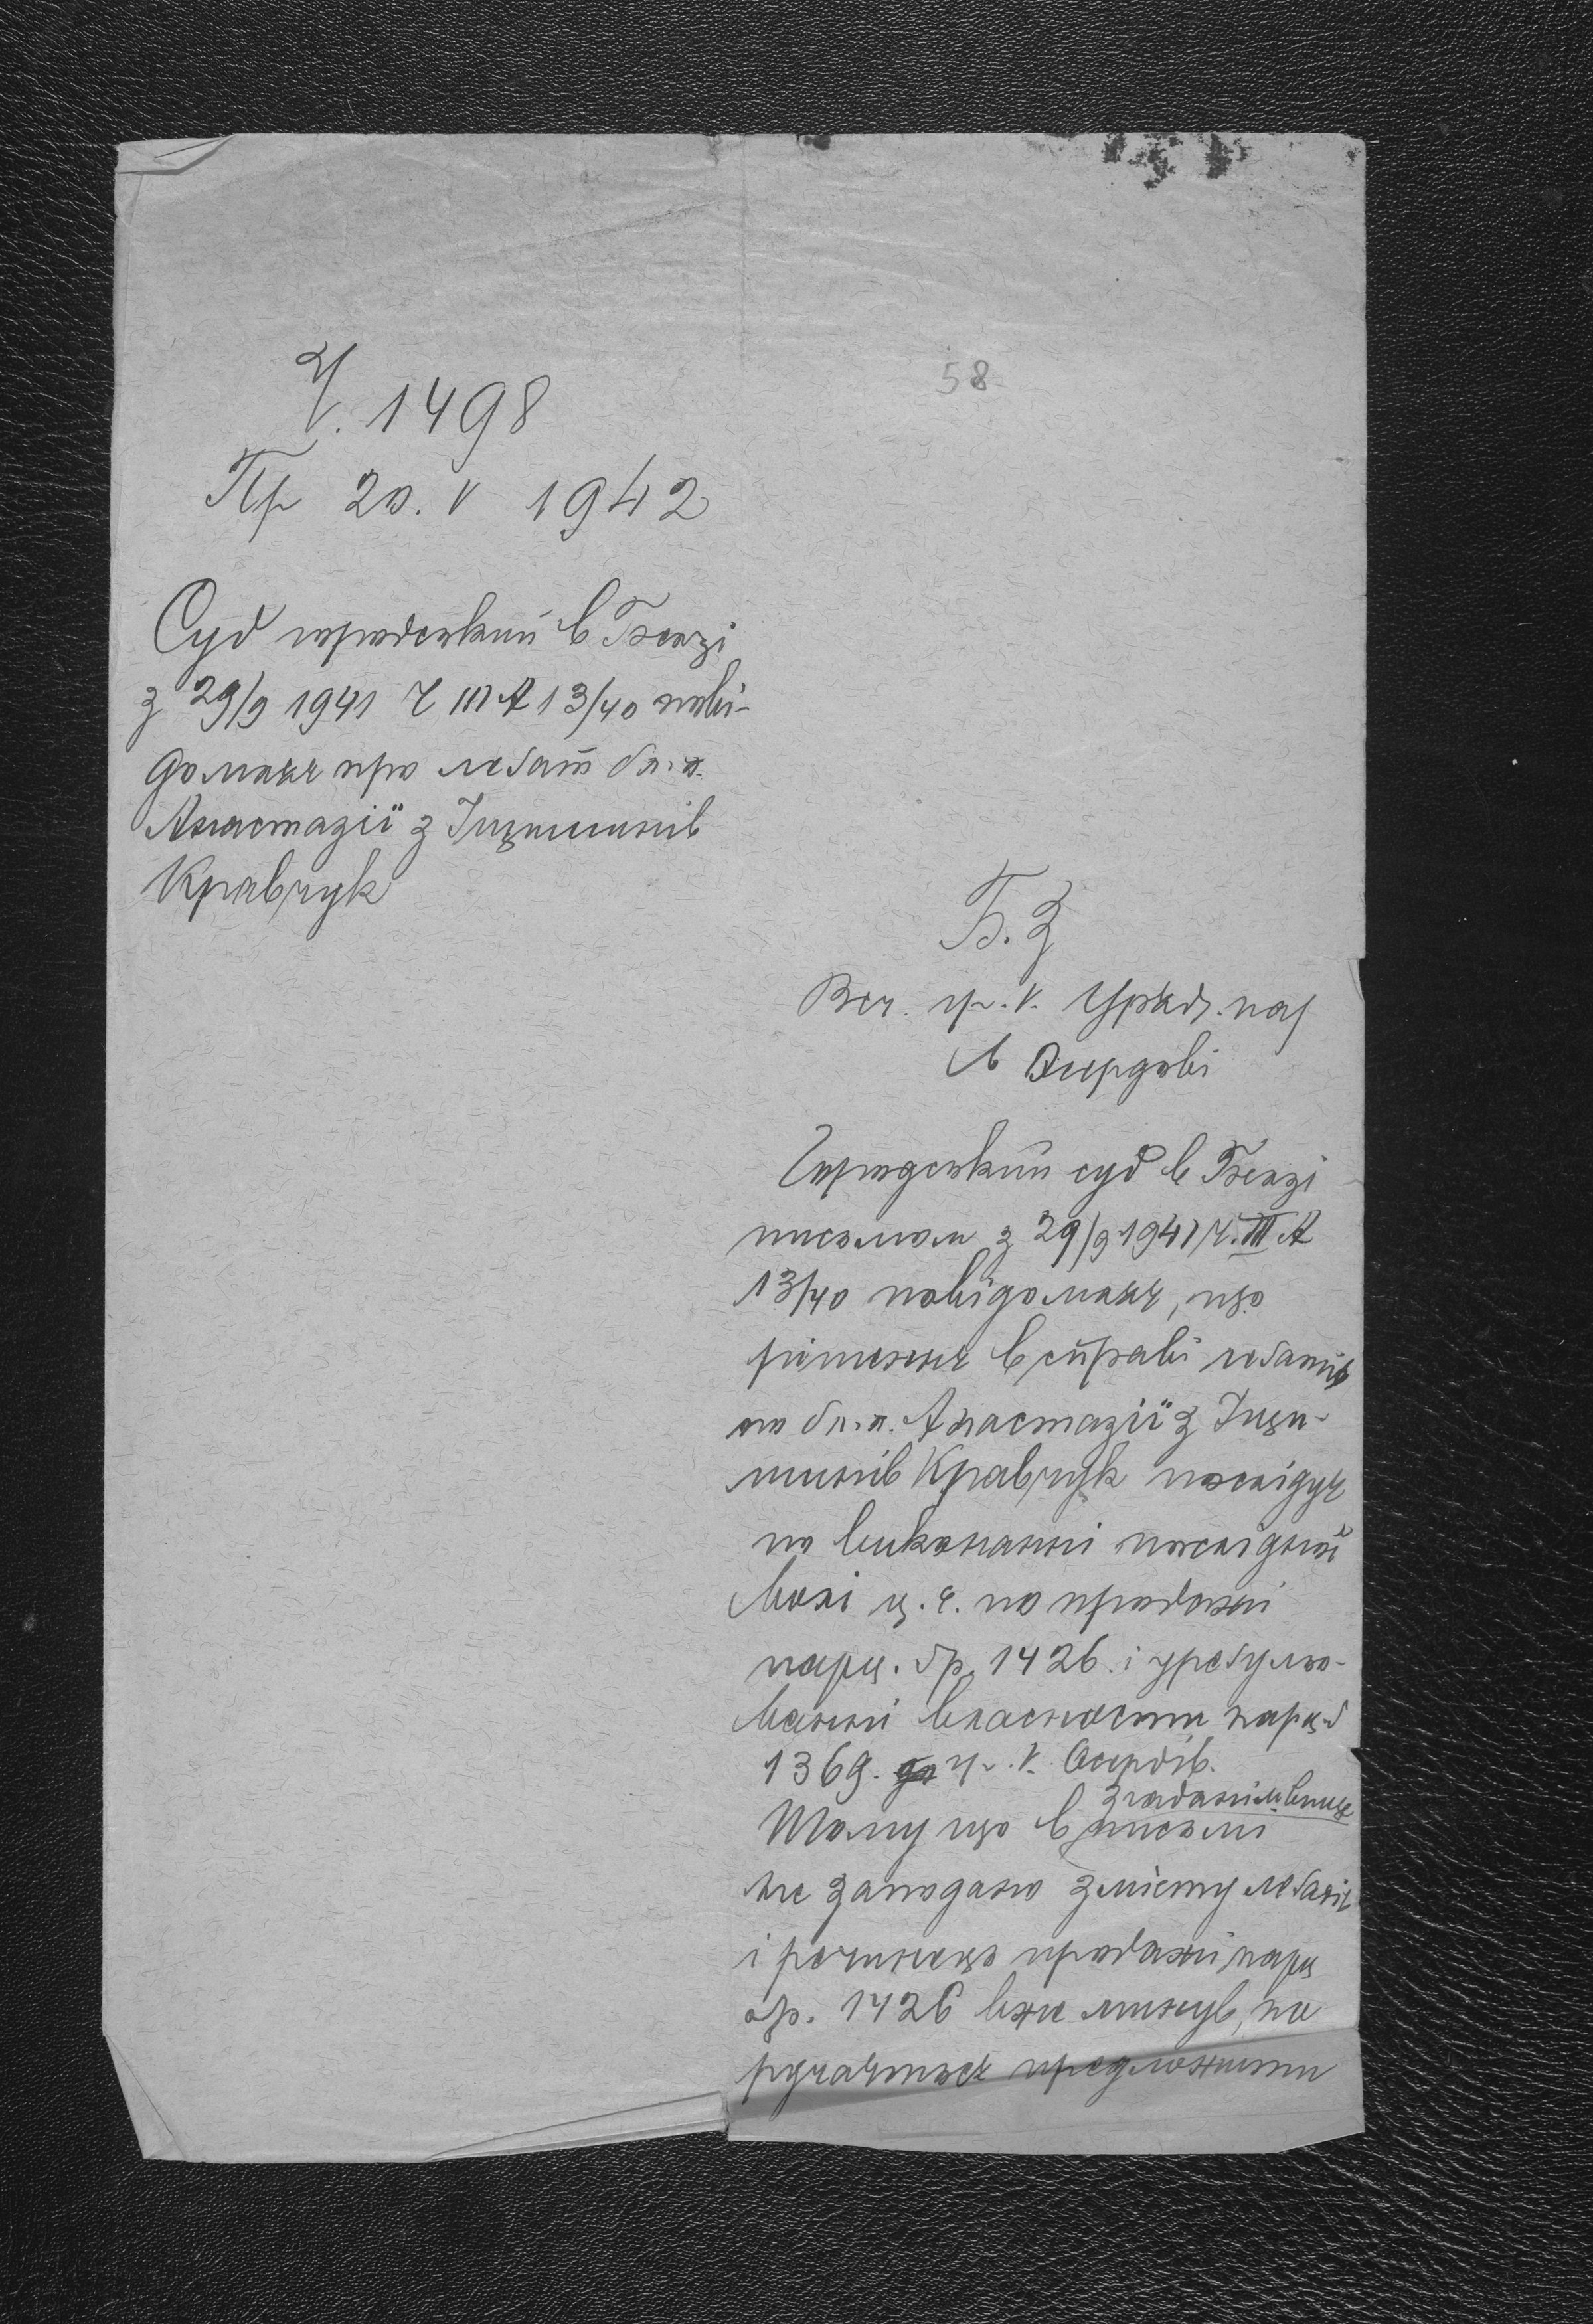 58
Ч. 1498
Пр 20. V 1942
Суд городский в Белзі
з 29/9 1941 Ч III А 13/40 пові-
домляє про лєґат бл. п.
Анастазії з Іщишинів
Кравчук
Б. З
Всч. гр. к. Уряд. пар
в Осердові
Городський суд в Белзі
письмом з 29/9 1941 Ч. III А
13/40 повідомляє, що
рішення в справі лєґатів
по бл. п. Анастазії з Іщи-
шинів Кравчук послідує
по виконанні послідної
волі ц. є. по продажі
парц. ґр. 1426 і уреґульо-
ванні власности парц. ґ
1369. гр. к. Осердів.
Тому що в згаданім више письмі
не заподано змісту лєґатів
і реченець продажі парц
ґр. 1426 вже минув, по
ручається предложити